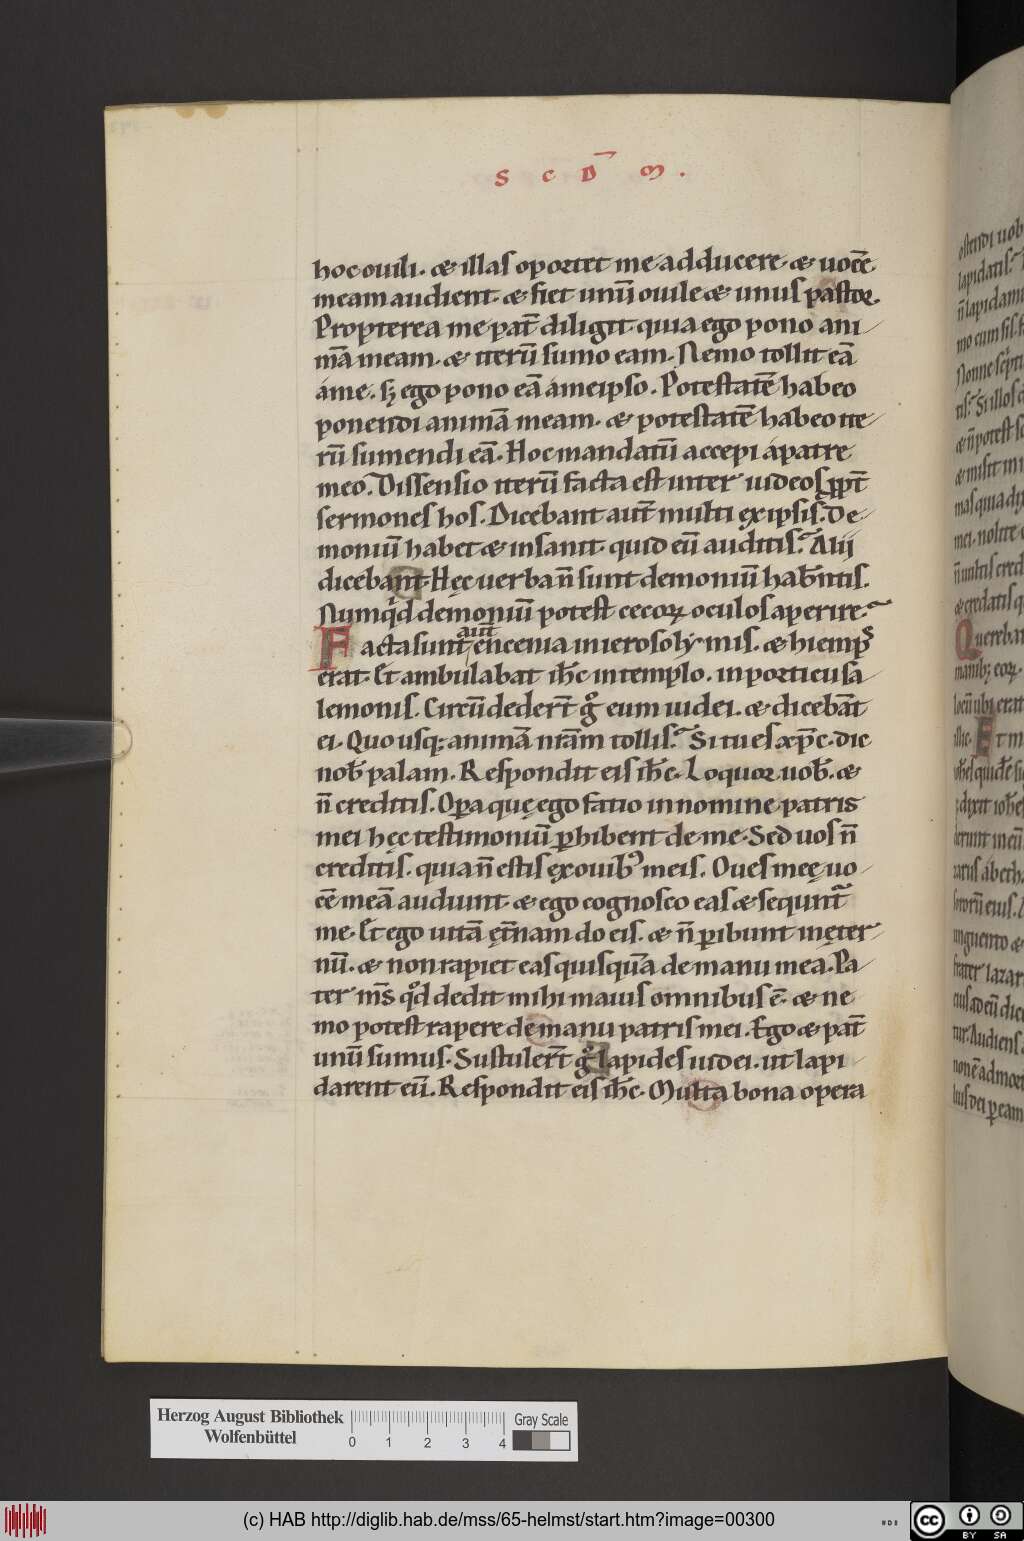 S C D̅ M.
hoc ouili. & illas oportet me adducere. & uocē
meam audient. & fiet unū ouile & unus pastor.
Propterea me pat̄ diligit. quia ego pono ani
mā meam. & iterū sumo eam. Nemo tollit eā
áme. sꝫ ego pono eā ámeipso. Potestatē habeo
ponendi animā meam. & potestatē habeo ite
rū sumendi eā. Hoc mandatū accepi ápatre
meo. Dissensio iterū facta est inter iudeos ꝓpt̄
sermones hos. Dicebant aut̄ multi ex ipsis. De
moniū habet & insanit. quid eū auditis. Alij
dicebant. Hęc uerba n̄ sunt demoniū hab̄ntis.
Numqͥd demoniū potest cecoꝝ oculos aperire.
aut̄
Facta sunt encenia inierosolymis. & hiemps
erat. Et ambulabat ih̄c in templo. in porticu sa
lemonis. Circūdeder̄t gͦ eum iudei. & dicebāt
ei. Quo usq; animā nrām tollis. Si tu es xp̄c. dic
nob̄ palam. Respondit eis ih̄c. Loquor uob̄. &
n̄ creditis. Oꝑa quę ego fatio in nomine patris
mei hęc testimoniū ꝑhibent de me. Sed uos n̄
creditis. quia n̄ estis ex ouibꝰ meis. Oues meę uo
cē meā audiunt. & ego cognosco eas & sequnt᷑
me. Et ego uitā ęt̄nam do eis. & n̄ ꝑibunt in ęter
nū. & non rapiet eas quisquā de manu mea. Pa
ter m̄s qͦd dedit mihi maius omnibus ē. & ne
mo potest rapere de manu patris mei. Ego & pat̄
unū sumus. Sustuler̄t gͦ lapides iudei. ut lapi
darent eū. Respondit eis ih̄c. Multa bona opera
ostendi uob
lapidatis.
n̄ lapidam
Quereba
Herzog August Bibliothek
Wolfenbüttel
0 1 2 3 4
Gray Scale
(c) HAB http://diglib.hab.de/mss/65-helmst/start.htm?image=00300
cc BY SA